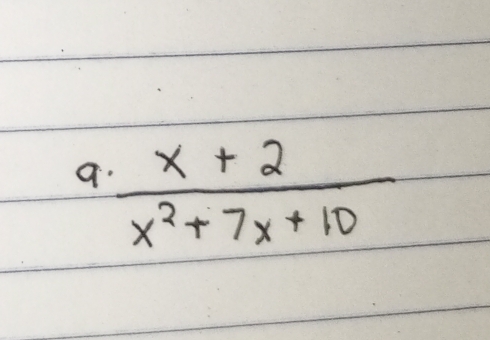 a. x + 2
x² + 7x + 10